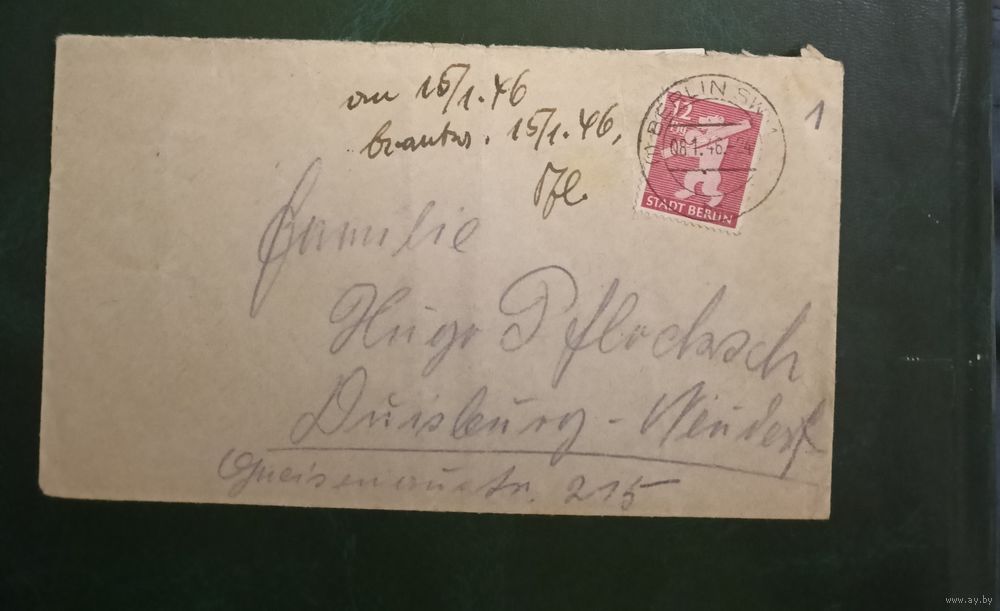 an 15/1.46
beantw. 15/1.46,
Pfl.
1
BERLIN SW
08.1.46
12
Pfg
STADT BERLIN
Familie
Hugo Pflocksch
Duisburg-Neudorf
Gneisenaustr. 215
www.ay.by